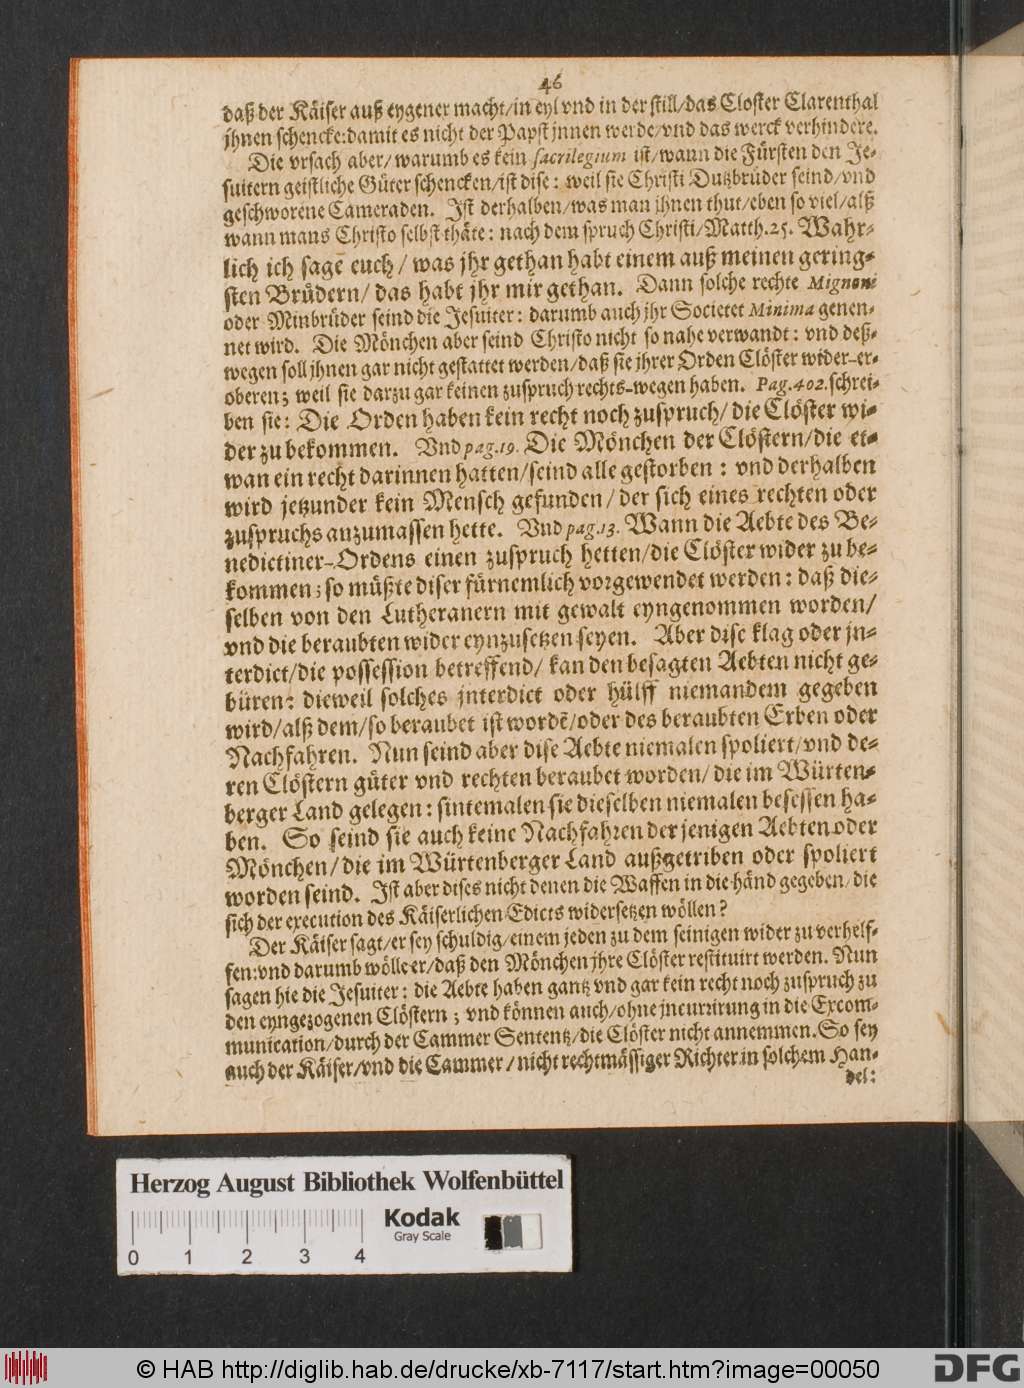 46
daß der Käiser auß eygener macht/in eyl vnd in der still/das Closter Clarenthal
jhnen schencke:damit es nicht der Papst jnnen werde/vnd das werck verhindere.
Die vrsach aber/warumb es kein sacrilegium ist/wann die Fürsten den Je-
suitern geistliche Güter schencken/ist dise: weil sie Christi Dutzbrüder seind/vnd
geschworene Cameraden. Ist derhalben/was man jhnen thut/eben so viel/alß
wann mans Christo selbst thäte: nach dem spruch Christi/Matth.25. Wahr-
lich ich sagē euch/ was jhr gethan habt einem auß meinen gering-
sten Brüdern/ das habt jhr mir gethan. Dann solche rechte Mignoni
oder Minbrüder seind die Jesuiter: darumb auch jhr Societet Minima genen-
net wird. Die Mönchen aber seind Christo nicht so nahe verwandt: vnd deß-
wegen soll jhnen gar nicht gestattet werden/daß sie jhrer Orden Clöster wider-er-
oberen; weil sie darzu gar keinen zuspruch rechts-wegen haben. Pag.402.schrei-
ben sie: Die Orden haben kein recht noch zuspruch/ die Clöster wi-
der zu bekommen. Vnd pag.19. Die Mönchen der Clöstern/die et-
wan ein recht darinnen hatten/seind alle gestorben: vnd derhalben
wird jetzunder kein Mensch gefunden/ der sich eines rechten oder
zuspruchs anzumassen hette. Vnd pag.13. Wann die Aebte des Be-
nedictiner-Ordens einen zuspruch hetten/die Clöster wider zu be-
kommen; so müßte diser fürnemlich vorgewendet werden: daß die-
selben von den Lutheranern mit gewalt eyngenommen worden/
vnd die beraubten wider eynzusetzen seyen. Aber dise klag oder jn-
terdict/die possession betreffend/ kan den besagten Aebten nicht ge-
büren: dieweil solches jnterdict oder hülff niemandem gegeben
wird/alß dem/so beraubet ist wordē/oder des beraubten Erben oder
Nachfahren. Nun seind aber dise Aebte niemalen spoliert/vnd de-
ren Clöstern güter vnd rechten beraubet worden/ die im Würten-
berger Land gelegen: sintemalen sie dieselben niemalen besessen ha-
ben. So seind sie auch keine Nachfahren der jenigen Aebten oder
Mönchen/ die im Würtenberger Land außgetriben oder spoliert
worden seind. Ist aber dises nicht denen die Waffen in die händ gegeben/die
sich der execution des Käiserlichen Edicts widersetzen wöllen?
Der Käiser sagt/er sey schuldig/einem jeden zu dem seinigen wider zu verhelf-
fen:vnd darumb wölle er/daß den Mönchen jhre Clöster restituirt werden. Nun
sagen hie die Jesuiter: die Aebte haben gantz vnd gar kein recht noch zuspruch zu
den eyngezogenen Clöstern; vnd können auch/ohne jncurrirung in die Excom-
munication/durch der Cammer Sententz/die Clöster nicht annemmen. So sey
auch der Käiser/vnd die Cammer/ nicht rechtmässiger Richter in solchem Han-
del:
Herzog August Bibliothek Wolfenbüttel
Kodak
Gray Scale
0 1 2 3 4
© HAB http://diglib.hab.de/drucke/xb-7117/start.htm?image=00050
DFG